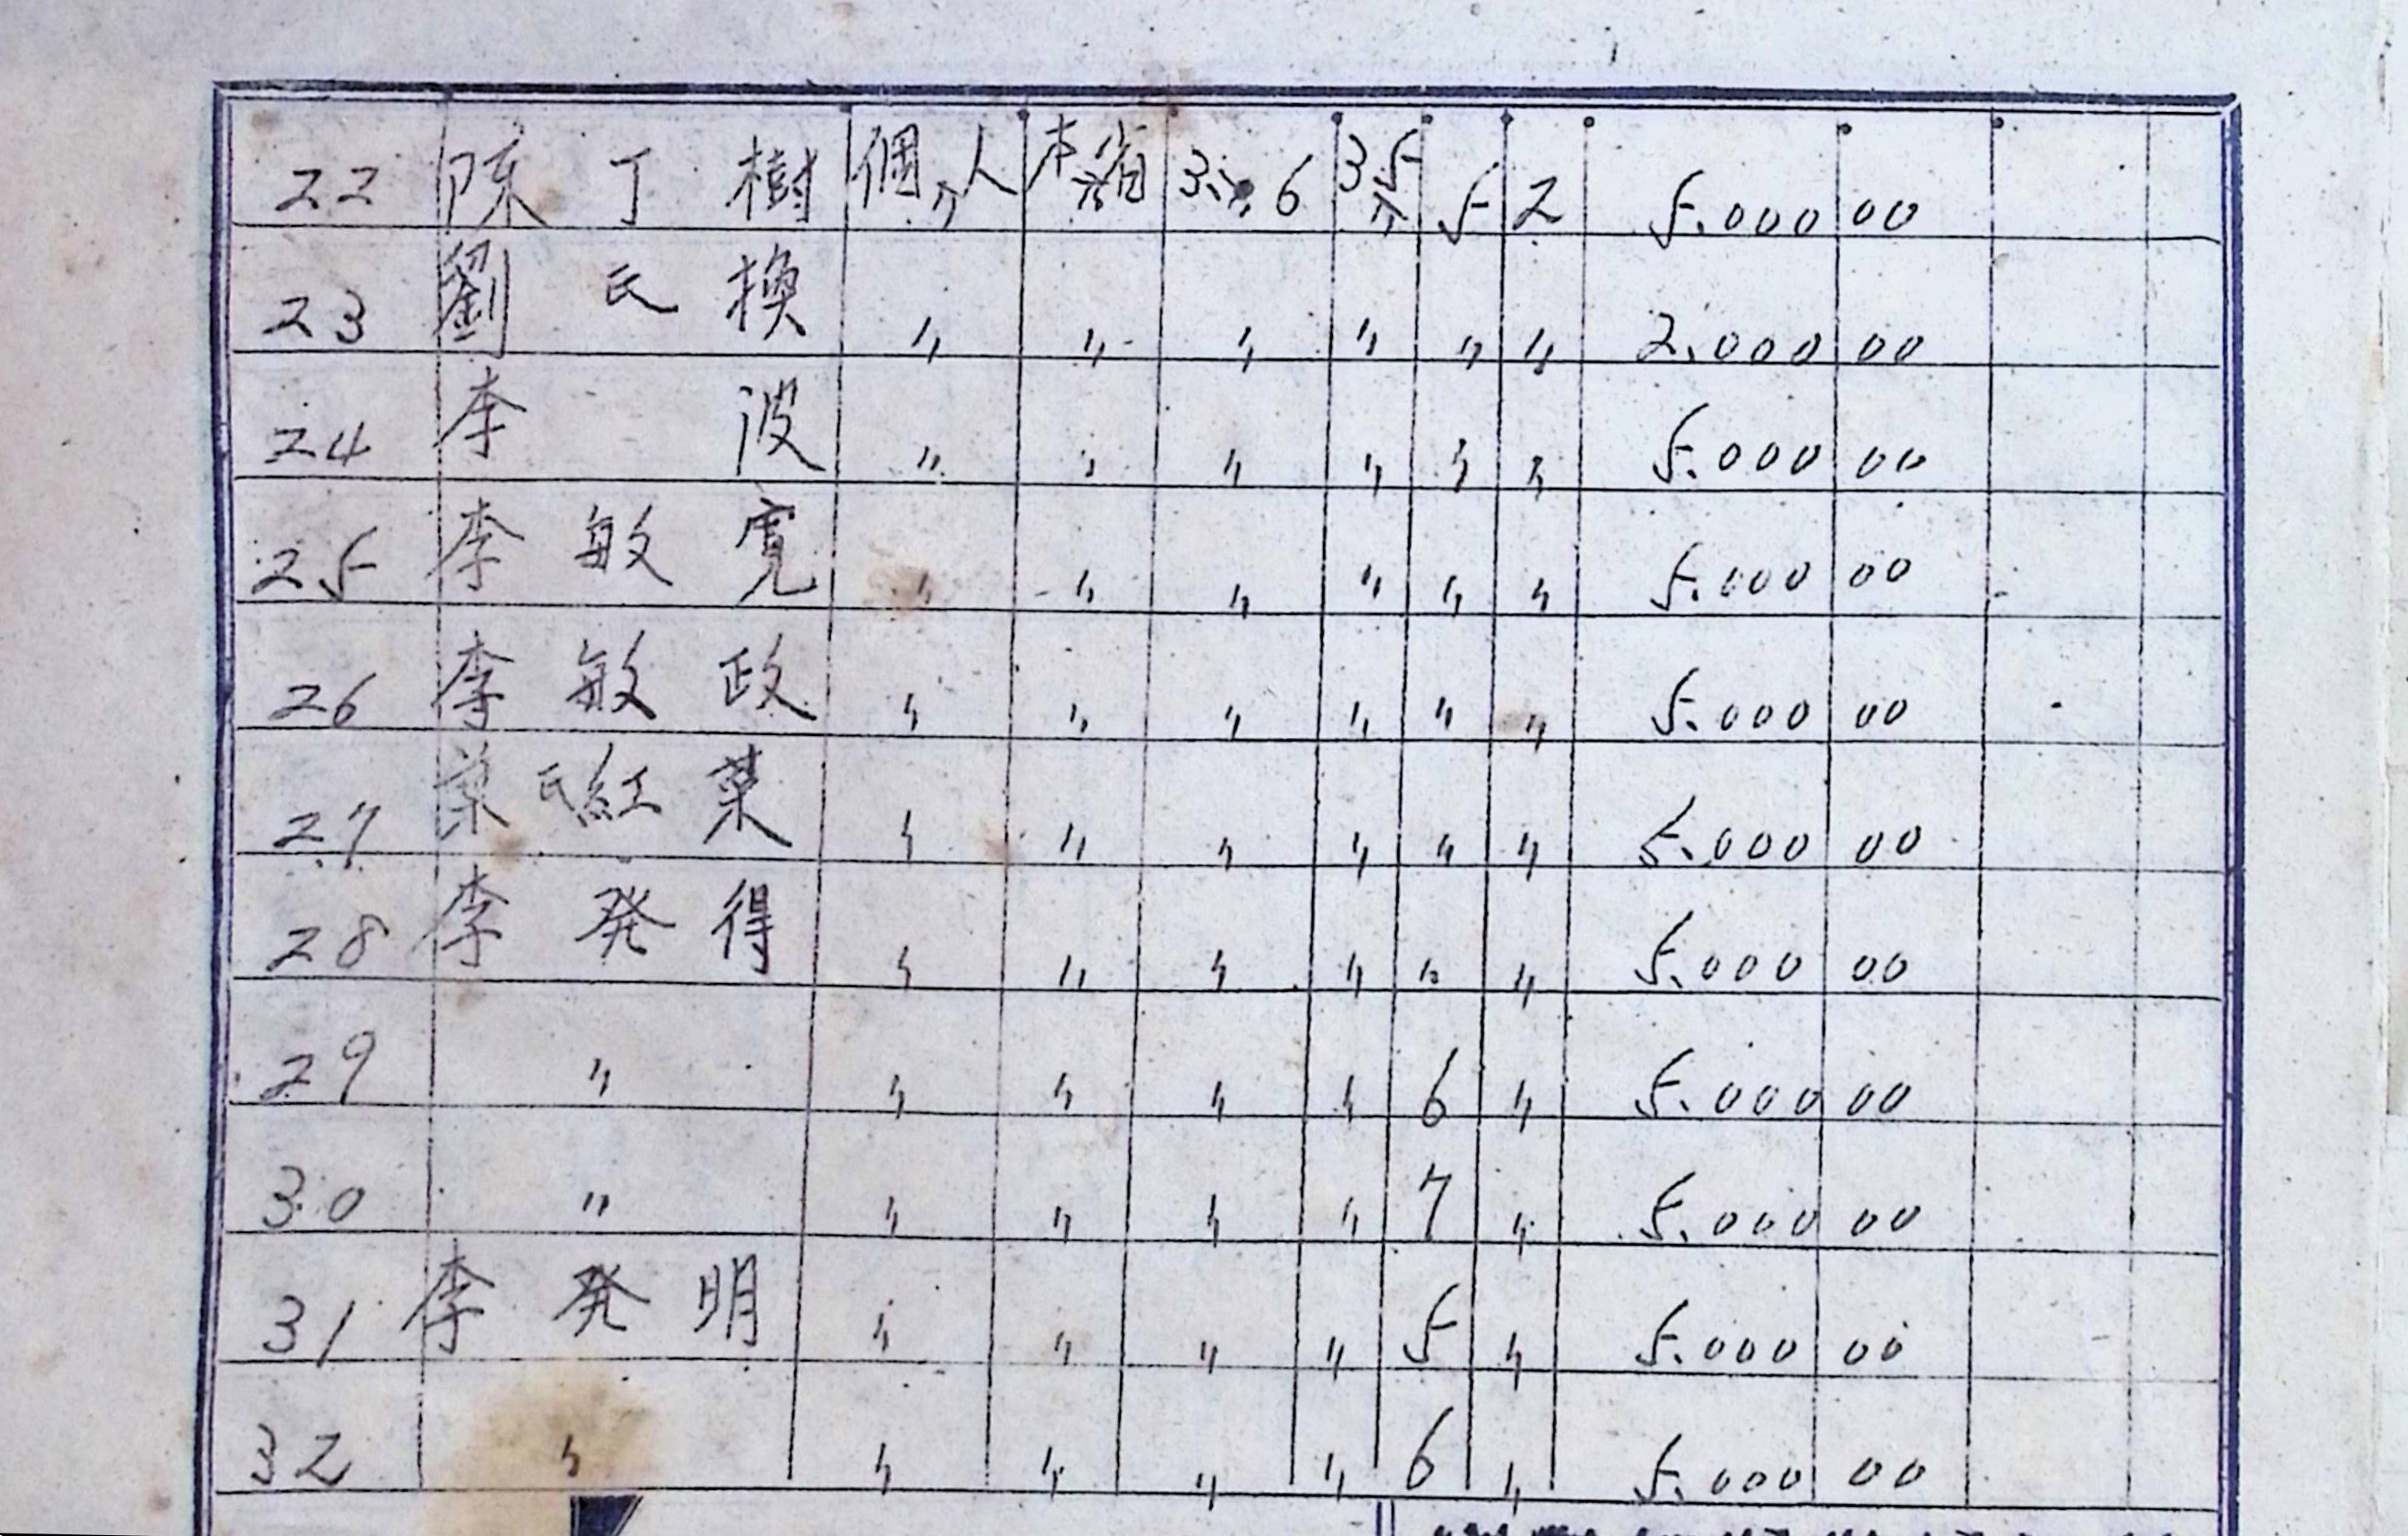 22 陳丁樹 個人 本省 3 6 35 5 2 5.000 00
23 劉氏換 〃 〃 〃 〃 〃 〃 2.000 00
24 李波 〃 〃 〃 〃 〃 〃 5.000 00
25 李敏寬 〃 〃 〃 〃 〃 〃 5.000 00
26 李敏政 〃 〃 〃 〃 〃 〃 5.000 00
27 葉氏紅葉 〃 〃 〃 〃 〃 〃 5.000 00
28 李発得 〃 〃 〃 〃 〃 〃 5.000 00
29 〃 〃 〃 〃 〃 6 〃 5.000 00
30 〃 〃 〃 〃 〃 7 〃 5.000 00
31 李発明 〃 〃 〃 〃 5 〃 5.000 00
32 〃 〃 〃 〃 〃 6 〃 5.000 00